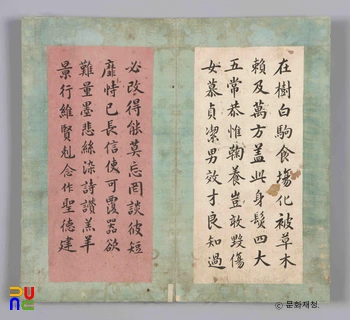 在樹白駒食塲化被草木
賴及萬方盖此身髮四大
五常恭惟鞠養豈敢毀傷
女慕貞潔男效才良知過
必改得能莫忘罔談彼短
靡恃己長信使可覆器欲
難量墨悲絲染詩讚羔羊
景行維賢剋念作聖德建
© 문화재청.